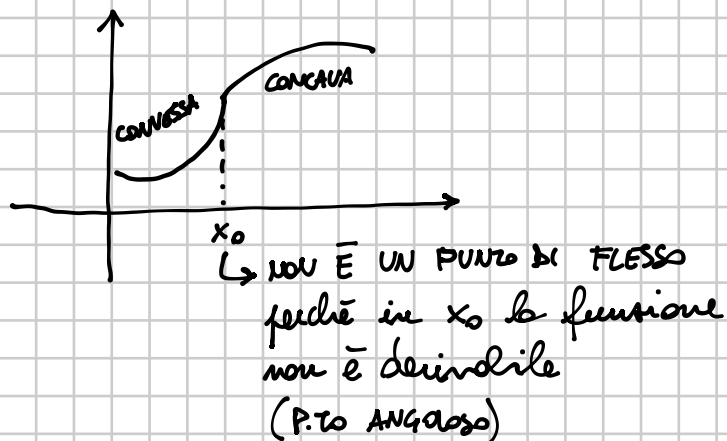 CONVESSA
CONCAVA
x₀
↳ NON È UN PUNTO DI FLESSO
perchē in x₀ la funzione
non ē derivabile
(P.TO ANGOLOSO)